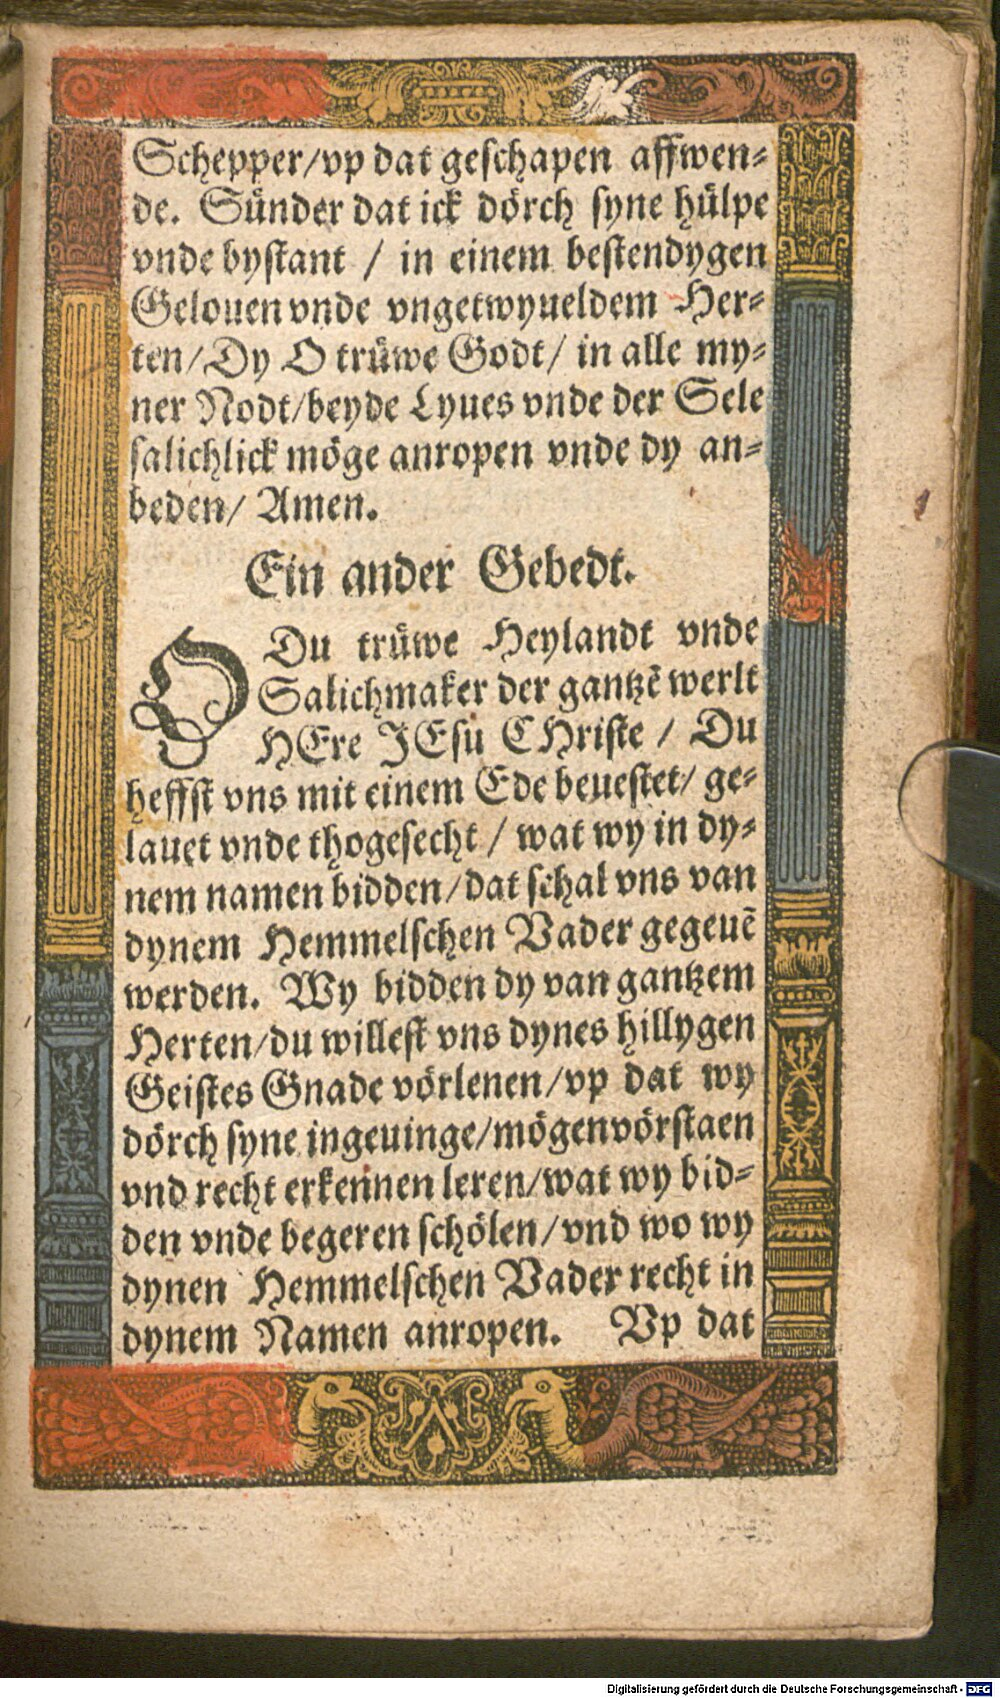 Schepper/vp dat geschapen affwen⸗
de. Sünder dat ick dörch syne hülpe
vnde bystant / in einem bestendygen
Gelouen vnde vngetwyueldem Her⸗
ten/Dy O trüwe Godt/ in alle my⸗
ner Nodt/beyde Lyues vnde der Sele
salichlick möge anropen vnde dy an⸗
beden/ Amen.
Ein ander Gebedt.
O Du trüwe Heylandt vnde
Salichmaker der gantzē werlt
HEre JEsu CHriste / Du
heffst vns mit einem Ede beuestet/ ge⸗
lauet vnde thogesecht / wat wy in dy⸗
nem namen bidden/dat schal vns van
dynem Hemmelschen Vader gegeuē
werden. Wy bidden dy van gantzem
Herten/du willest vns dynes hillygen
Geistes Gnade vörlenen/vp dat wy
dörch syne ingeuinge/mögen vörstaen
vnd recht erkennen leren/wat wy bid⸗
den vnde begeren schölen/vnd wo wy
dynen Hemmelschen Vader recht in
dynem Namen anropen. Vp dat
Digitalisierung gefördert durch die Deutsche Forschungsgemeinschaft - DFG